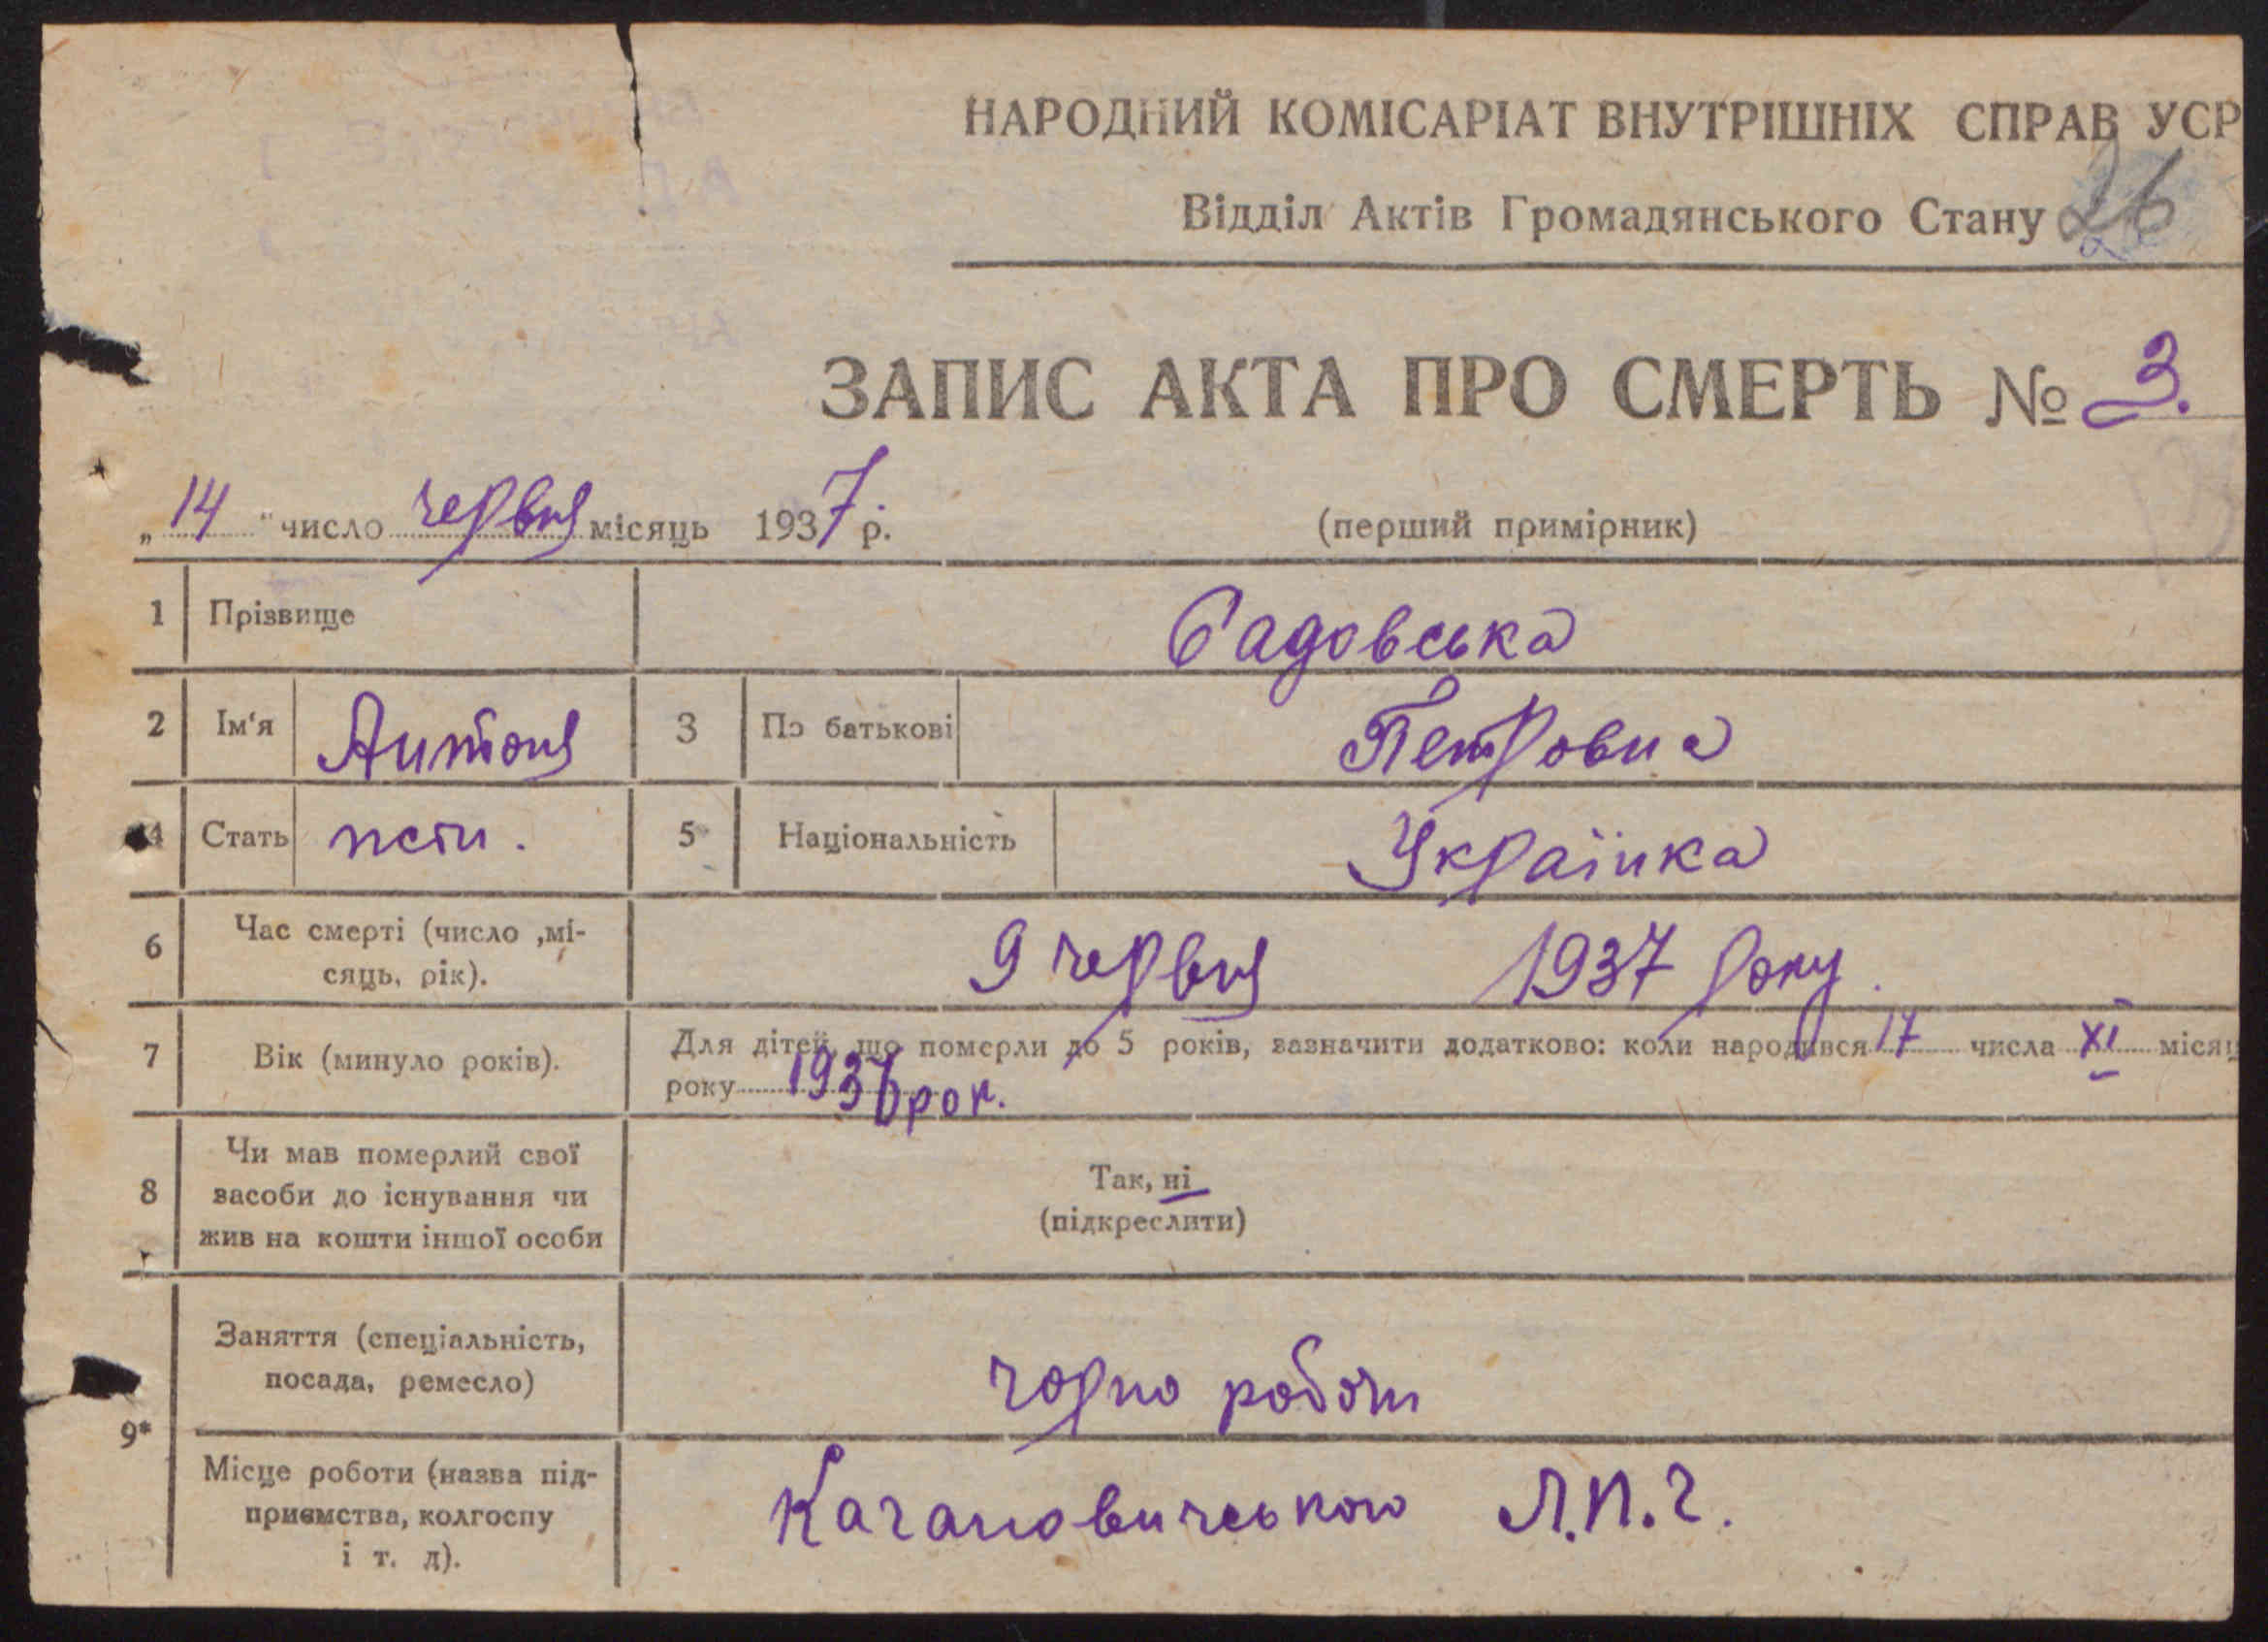 НАРОДНИЙ КОМІСАРІАТ ВНУТРІШНІХ СПРАВ УСР
Відділ Актів Громадянського Стану 26
ЗАПИС АКТА ПРО СМЕРТЬ № 3.
„14" число червня місяць 1937 р.
(перший примірник)
1 Прізвище Садовська
2 Ім'я Антоня 3 По батькові Петровна
4 Стать 5 Національність Українка
6 Час смерті (число ,мі-
сяць, рік). 9 червня 1937 року.
7 Вік (минуло років). Для дітей, що померли до 5 років, зазначити додатково: коли народився 17 числа XI місяц
року 1936 рок.
8 Чи мав померлий свої
засоби до існування чи
жив на кошти іншої особи
Так, ні
(підкреслити)
9* Заняття (спеціальність,
посада, ремесло) чорно роботи
Місце роботи (назва під-
приємства, колгоспу
і т. д). Кагановичського Л.П.Г.